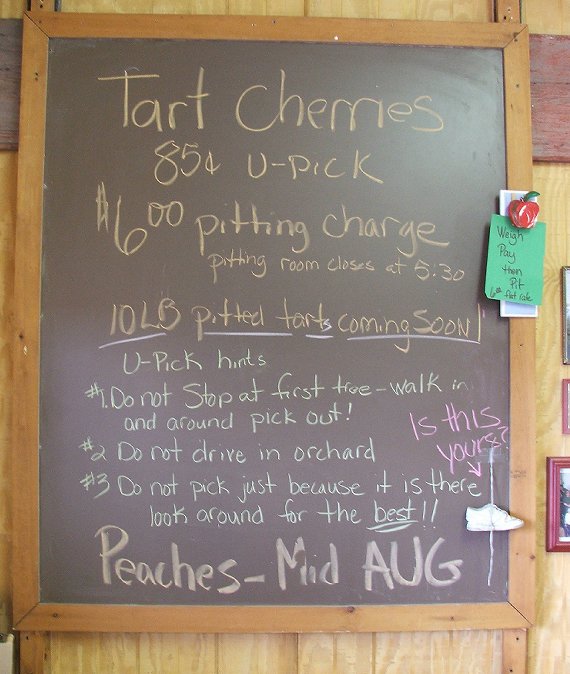 Tart Cherries
85¢ U-Pick
$6.00 pitting charge
pitting room closes at 5:30
10 LB pitted tarts coming Soon!
U-Pick hints
#1. Do not Stop at first tree - walk in
and around pick out!
#2 Do not drive in orchard
#3 Do not pick just because it is there
look around for the best!!
Peaches - Mid AUG
Is this
yours?
Weigh
Pay
then
Pit
6.00 flat rate